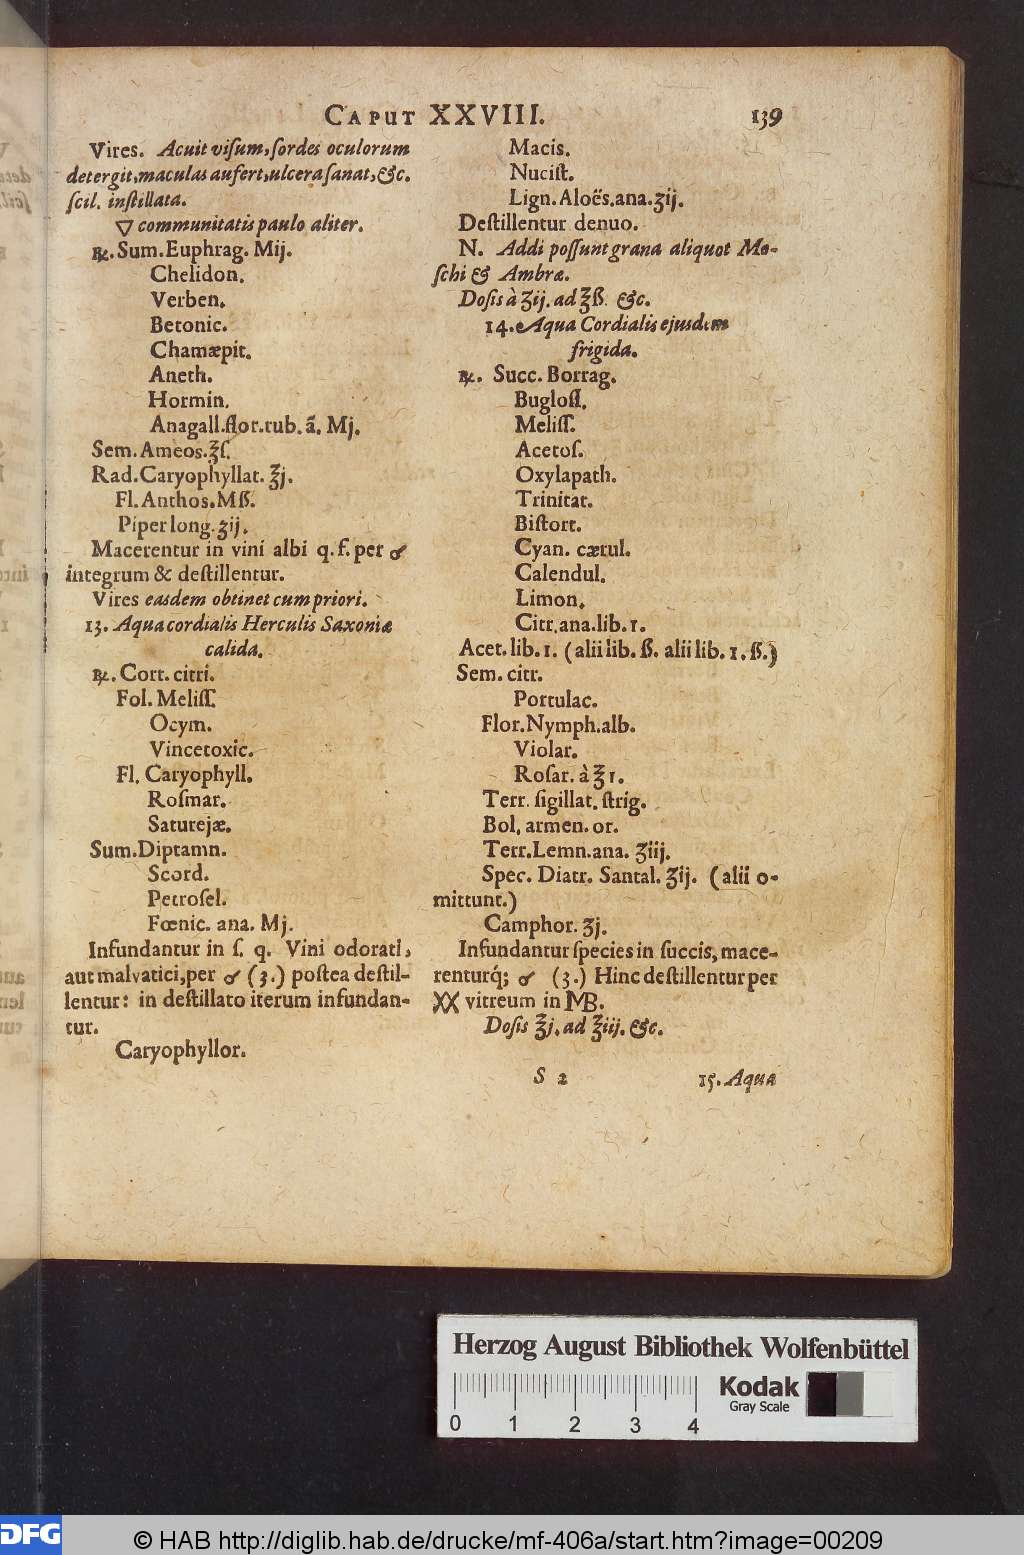 CAPUT XXVIII. 139
Vires. Acuit viſum, ſordes oculorum
detergit, maculas aufert, ulcera ſanat, &c.
ſcil. inſtillata.
▽ communitatis paulo aliter.
℞. Sum. Euphrag. Mij.
Chelidon.
Verben.
Betonic.
Chamæpit.
Aneth.
Hormin.
Anagall. flor. rub. ã. Mj.
Sem. Ameos. ℥ſ.
Rad. Caryophyllat. ℥j.
Fl. Anthos. Mß.
Piper long. ʒij.
Macerentur in vini albi q. ſ. per ♂
integrum & deſtillentur.
Vires easdem obtinet cum priori.
13. Aqua cordialis Herculis Saxoniæ
calida.
℞. Cort. citri.
Fol. Meliſſ.
Ocym.
Vincetoxic.
Fl. Caryophyll.
Roſmar.
Saturejæ.
Sum. Diptamn.
Scord.
Petroſel.
Fœnic. ana. Mj.
Infundantur in ſ. q. Vini odorati,
aut malvatici, per ♂ (3.) poſtea deſtil-
lentur: in deſtillato iterum infundan-
tur.
Caryophyllor.
Macis.
Nuciſt.
Lign. Aloës. ana. ʒij.
Deſtillentur denuo.
N. Addi poſſunt grana aliquot Mo-
ſchi & Ambræ.
Doſis à ʒij. ad ℥ß. &c.
14. Aqua Cordialis ejusdem
frigida.
℞. Succ. Borrag.
Bugloſſ.
Meliſſ.
Acetoſ.
Oxylapath.
Trinitat.
Biſtort.
Cyan. cærul.
Calendul.
Limon.
Citr. ana. lib. 1.
Acet. lib. 1. (alii lib. ß. alii lib. 1. ß.)
Sem. citr.
Portulac.
Flor. Nymph. alb.
Violar.
Roſar. à ℥ 1.
Terr. ſigillat. ſtrig.
Bol. armen. or.
Terr. Lemn. ana. ʒiij.
Spec. Diatr. Santal. ʒij. (alii o-
mittunt.)
Camphor. ʒj.
Infundantur ſpecies in ſuccis, mace-
renturq́; ♂ (3.) Hinc deſtillentur per
XX vitreum in MB.
Doſis ℥j. ad ℥iij. &c.
S 2 15. Aqua
Herzog August Bibliothek Wolfenbüttel
Kodak
Gray Scale
0 1 2 3 4
DFG © HAB http://diglib.hab.de/drucke/mf-406a/start.htm?image=00209